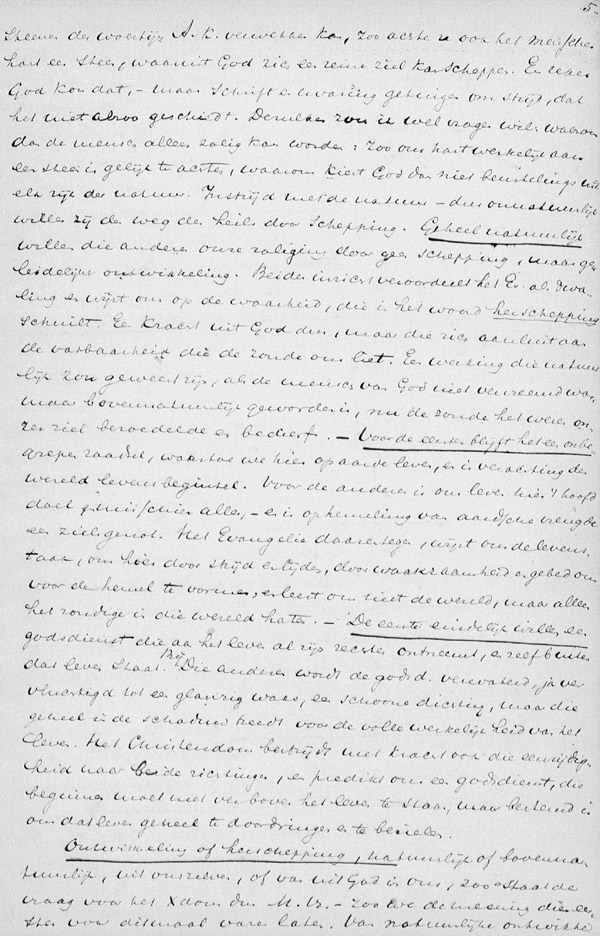 5-
steenen der woestijn A.k. verwekken kan, zoo achten ze ook het menschen
hart een steen, waaruit God zich een reine ziel kan scheppen. En zeker
God kon dat, - maar Schrift en ervaring getuigen om strijd, dat
het niet alzoo geschiedt. Denzulken zou ik wel vragen willen waarom
dan de mensch alleen zalig kan worden: zoo ons hart werkelijk aan
een steen is gelijk te achten, waarom kiest God dan niet beurtelings uit
elk rijk der natuur. In strijd met de natuur - dus onnatuurlijk
willen zij de weg des heils door schepping. Geheel natuurlijk
willen die anderen onze zaliging door geen schepping, maar ge
leidelijke ontwikkeling. Beider inzicht veroordeelt het Ev. als dwa-
ling en wijst ons op de waarheid, die in het woord herschepping
schuilt. Een kracht uit God dus, maar die zich aansluit aan
de vatbaarheid die de zonde ons liet. Een werking die natuur
lijk zou geweest zijn, als de mensch van God niet vervreemd was,
maar bovennatuurlijk geworden is, nu de zonde het wezen on-
zer ziel bezoedelde en bedierf. - Voor de eersten blijft het een onbe
grepen raadsel, waartoe we hier op aarde leven, en is verachting der
wereld levensbeginsel. Voor de anderen is ons leven hier 't hoofd
doel, zinnelijk schier alles, - en is ophemeling van aardsche vreugde
een zielsgenot. Het Evangelie daarentegen, wijst ons de levens-
taak, om hier door strijd en lijden, door waakzaamheid en gebed ons
voor den hemel te vormen, en leert ons niet de wereld, maar alleen
het zondige in die wereld haten. - De eersten eindelijk willen een
godsdienst die aan het leven al zijn rechten ontneemt, en zelf buiten
dat leven staat. Bij Die anderen wordt de godsd. vervaagd, ja ver
vluchtigd tot een glanzig waas, een schoone dichting, maar die
geheel in de schaduw treedt voor de volle werkelijkheid van het
leven. Het Christendom bestrijdt met kracht ook die eenzijdig-
heid naar beide richtingen, en predikt ons een godsdienst, die
beginnen moet met ver boven het leven te staan, maar bestemd is
om dat leven geheel te doordringen en te bezielen.
Ontwikkeling of herschepping, natuurlijk of bovenna-
tuurlijk, uit onszelven, of van uit God in ons, zoo staat de
vraag voor het Xdom dus M. Br. - Zoo we de meening der eer-
sten voor ditmaal varen laten. Van natuurlijke ontwikke